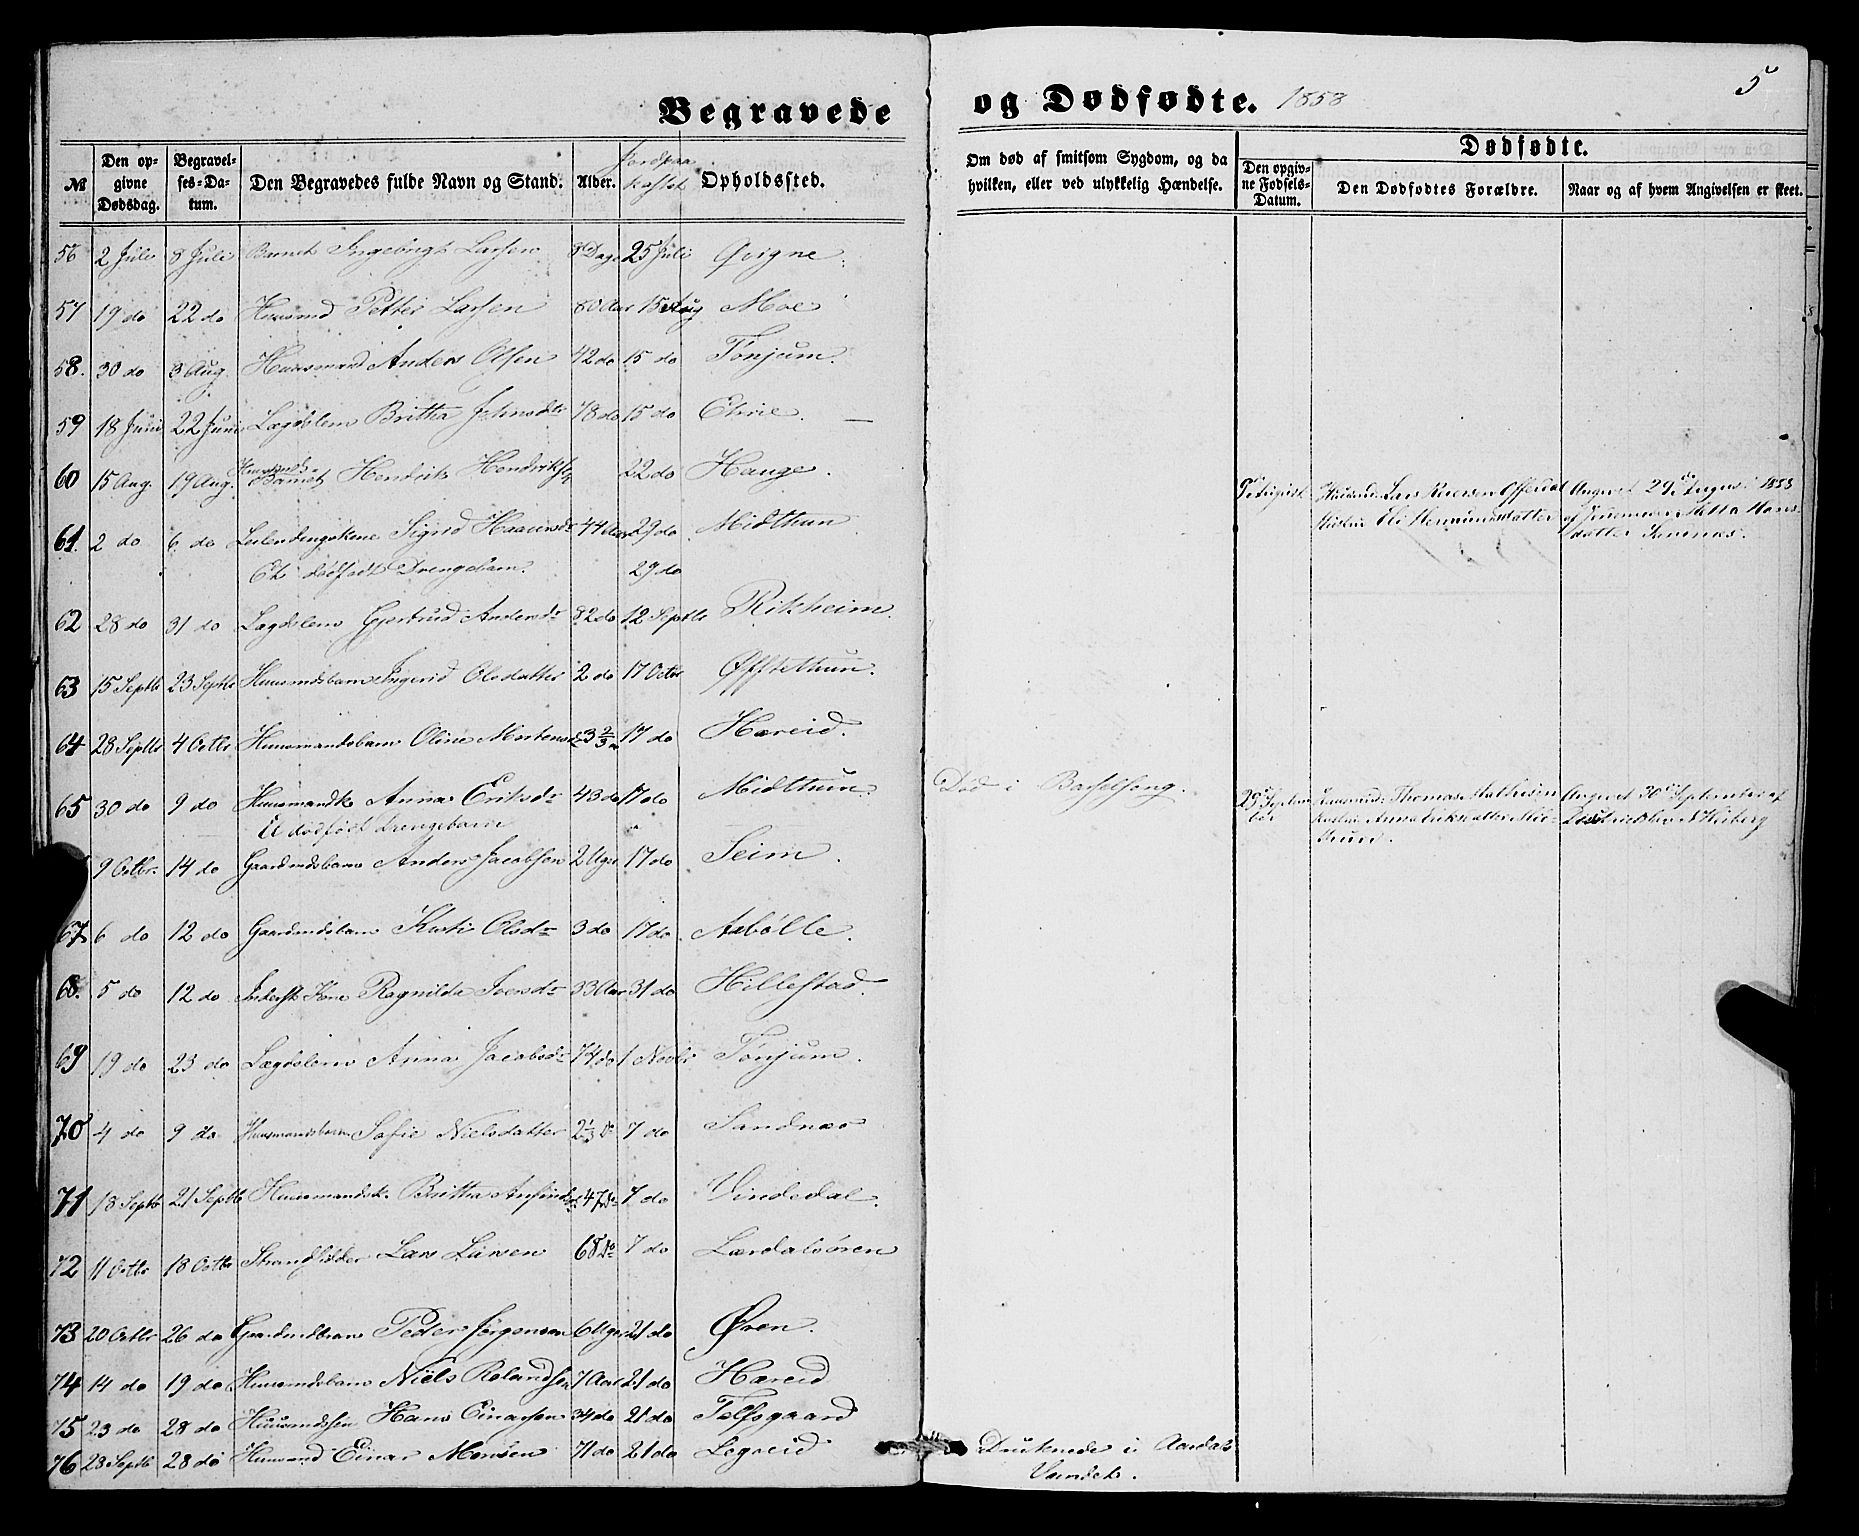 Begravede og Dødfødte. 1858
5
№ | Den opgivne Dødsdag. | Begravelses-Datum. | Den Begravedes fulde Navn og Stand. | Alder. | Jordpaakastet | Opholdssted. | Om død af smitsom Sygdom, og da hvilken, eller ved ulykkelig Hændelse. | Dødfødte. | Den opgivne Fødsels-Datum. | Den Dødfødtes Forældre. | Naar og af hvem Angivelsen er skeet.
56 2 Juli 8 Juli Barnet Ingebrigt Larsen 8 Dage 25 Juli Qvigne
57 19 do 22 do Huusmd Petter Larsen 80 Aar 15 Aug Moe
58. 30 do 3 Aug. Huusmand Anders Olsen 42 do 15 do Tønjum.
59 18 Juni 22 Juni Lægdslem Britha Johnsdtr 78 do 15 do Ehrie.
60 15 Aug. 19 Aug. Huusmands Barnet Hendrik Hendriksen 22 do Hauge.
61. 2 do 6 do Leilendingskone Sigrid 44 Aar 29 do Midthun
Et dødfødt Drengebarn. 29 do
Huusmd Lars Offerdal Angivet 29 August 1858
Hustru datter af Metta Hans-
datter
62 28 do 31 do Lægdslem Gjertrud Andersdr 82 do 12 Septbr Rikheim
63 15 Septb 23 Septbr Huusmdsbarn Ingerid Olsdatter 2 do 17 Octbr Øffstethun.
64 28 Septbr 4 Octbr Huusmandsbarn Oline Mortensd 3 2/3 17 do Hæreid.
65 30 do 9 do Huusmandsk Anna Eriksdr 43 do 17 do Midthun. Død i Barselseng.
Et dødfødt Drengebarn
29 Septem Huusmd: Thomas Mathison Angivet 30 September af
ber Hustru Anna Eriksdatter Mid-
thun.
9 Octbr. 14 do Gaardmdsbarn Anders Jacobsen 2 Uger 17 do Seim.
67 6 do 12 do Gaardmdsbarn Kirsti Olsdr 3 do 17 do Asbølle.
68. 5 do 12 do Inderst Kone Ragnilda Iversdr 33 Aar 31 do Hillestad.
69 19 do 23 do Lægdslem Anna Jacobsdr 74 do 1 Novbr Tønjum.
70 4 do 9 do Huusmandsbarn Sofie Nielsdatter 2 1/3 do 7 do Sandnæs
71 18 Septb 21 Septb Huusmandsk. Britha Anfindsd 47 do 7 do Vindedal.
72 11 Octbr 18 Octbr Strandsidder Lars Larsen 68 do 7 do Lærdalsøren
73 20 Octbr 26 do Gaardmdsbarn Peder Jørgensen 6 Uger 21 do Øren.
74 14 do 19 do Huusmdsbarn Niels Rolandsen 7 Aar 21 do Hæreid
75 23 do 28 do Huusmdsøn Hans Einarsen 34 do 21 do
76 23 Septb 28 do Huusmand Einar Monsen 71 do 21 do Legreid Druknede i Aardals
Vandet.